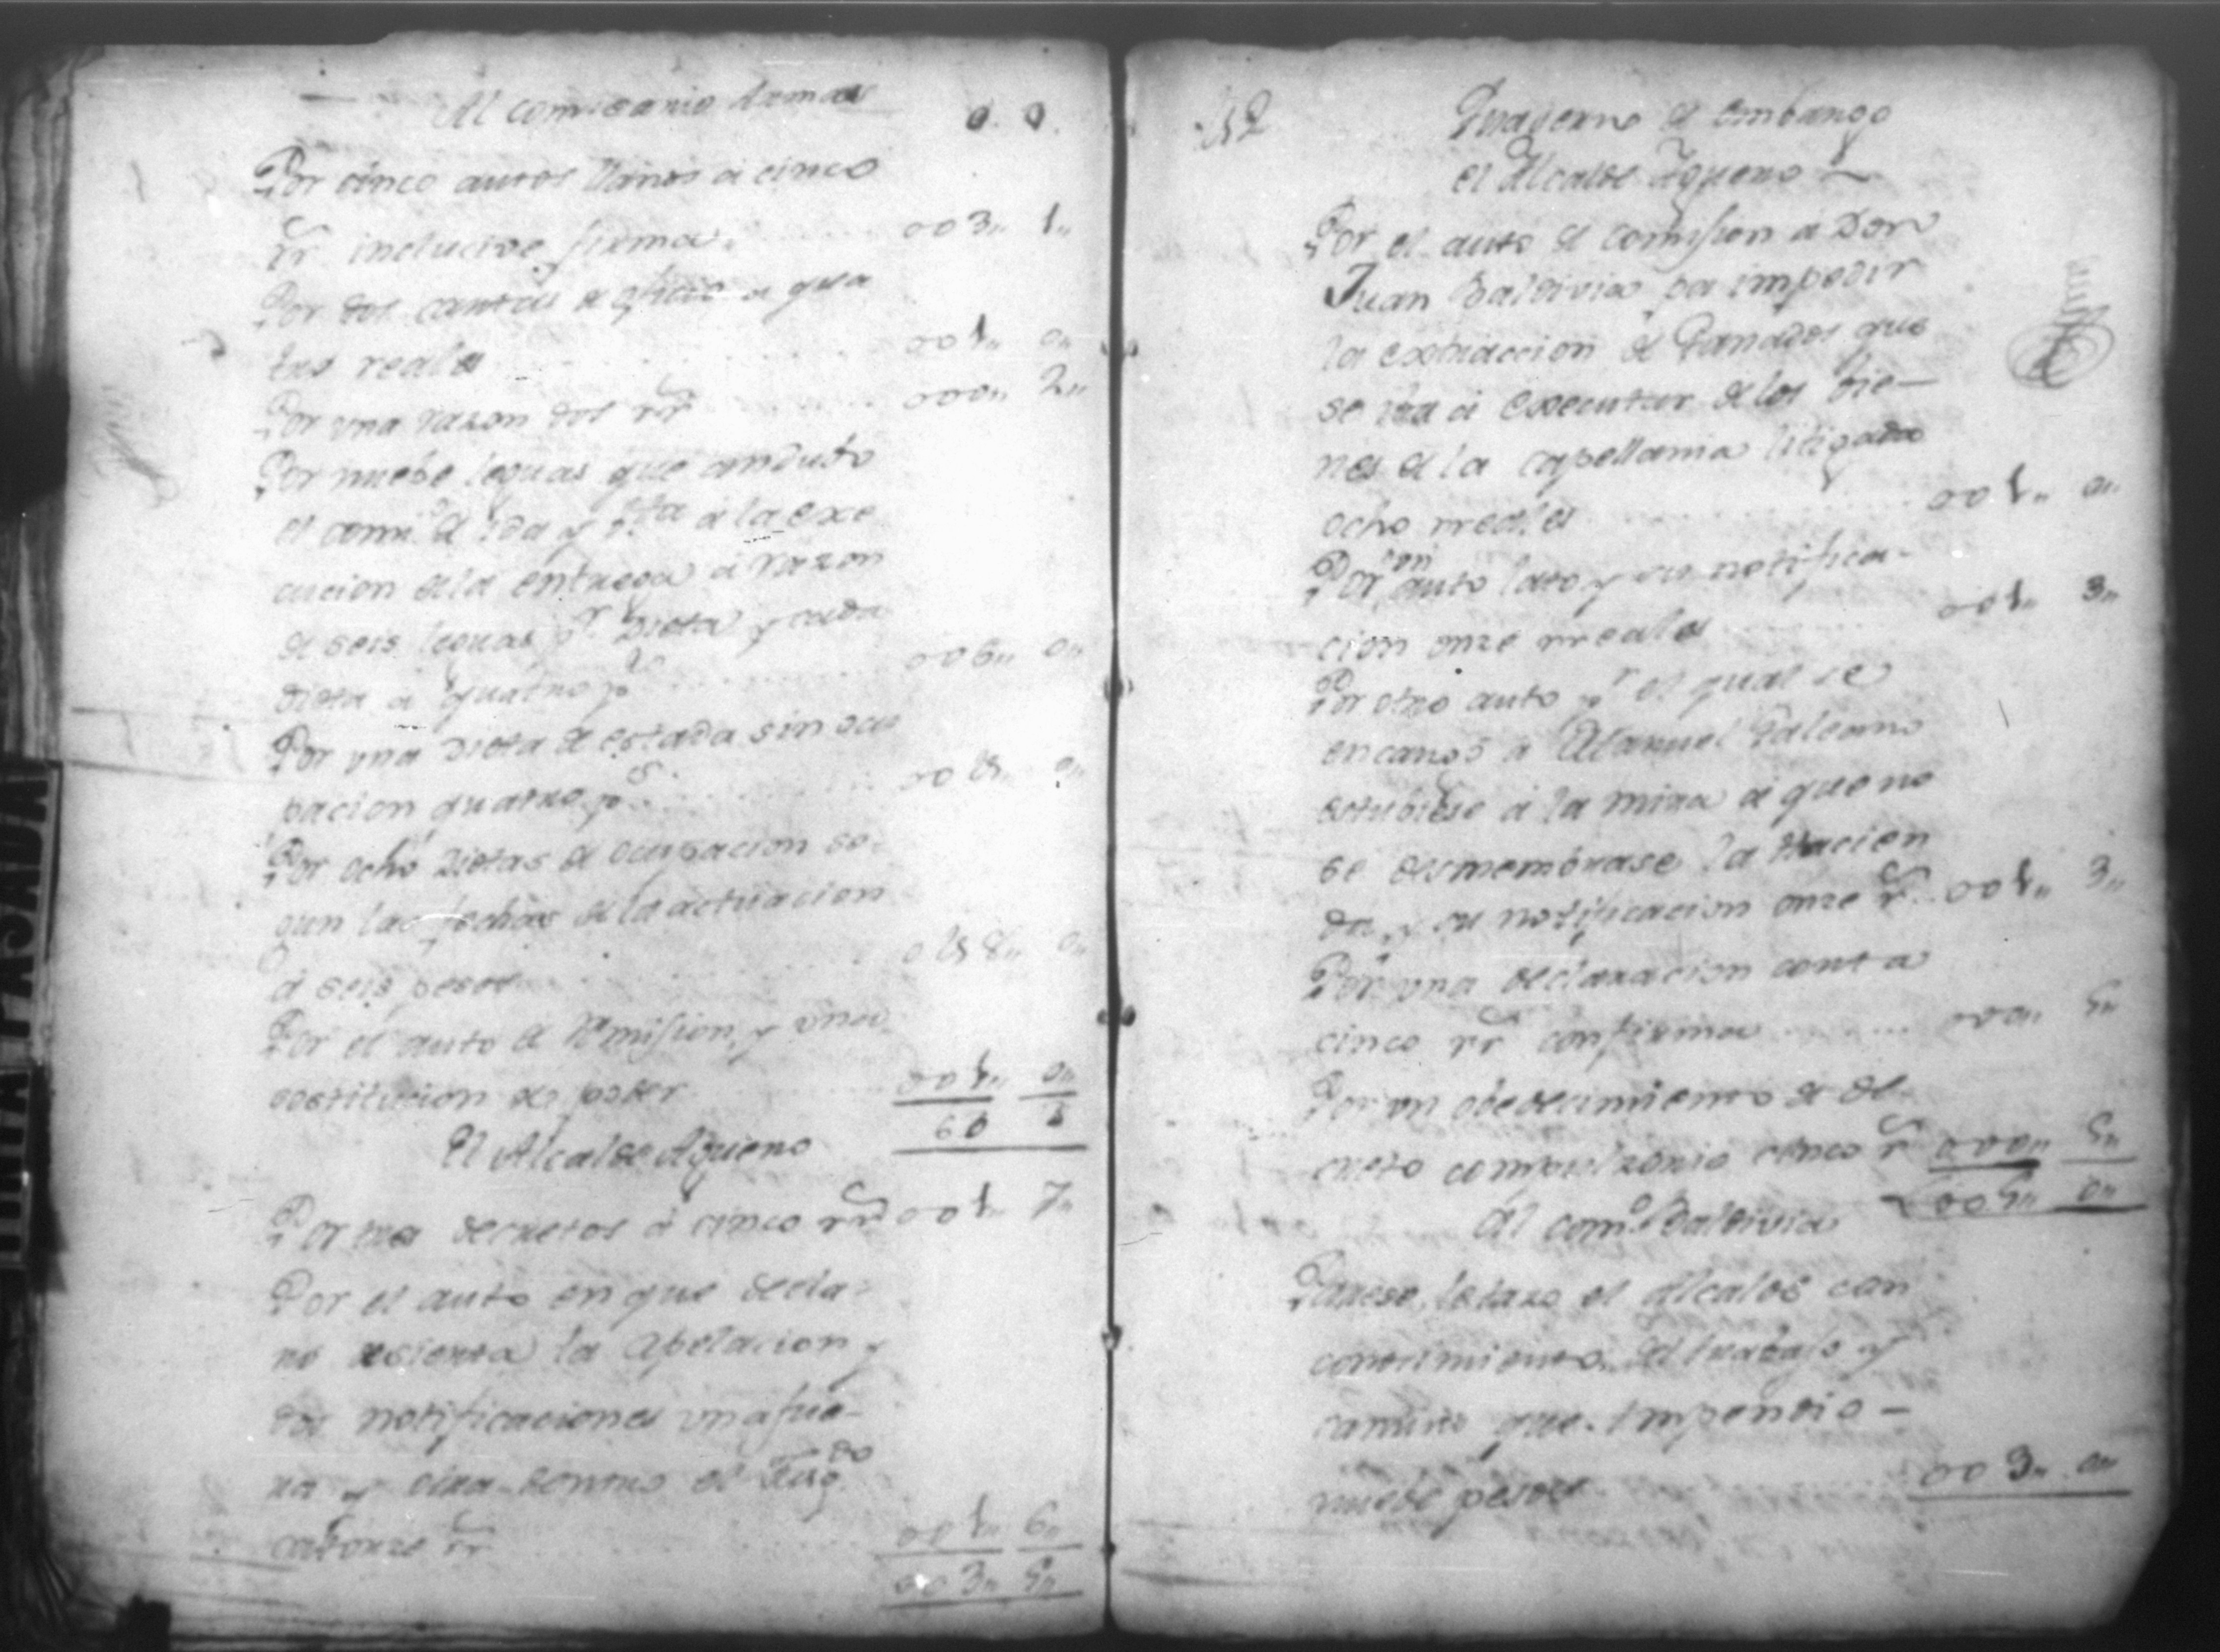 Al comisario Armas
Por cinco autos llanos a cinco
rr inclucive firma 003,, 1,,
Por dos cartas de oficio a qua
tro reales 001,, 0,,
Por una razon dos rr 000,, 2,,
Por nuebe leguas que andubo
el comi.º de ida y b.ta a la exe
cucion de la entrega a razon
de seis leguas pr Dieta y cada
Dieta a quatro ps 006,, 0,,
Por una Dieta de estada sin ocu
pacion quatro ps 004,, 0,,
Por ocho Dietas de ocupacion se-
gun las fechas de la actuacion
a seis pesos 048,, 0,,
Por el auto de Remision, y una
sostitucion de poder 001,, 0,,
El Alcalde Agueno
Por tres decretos a cinco rr 001,, 7,,
Por el auto en que decla-
ro decierta la Apelacion y
dos notificaciones una fue-
ra y otra dentro el Juzgdo
catorze rr 001,, 6,,
003,, 5,,
42
Quaderno de embargo
el Alcalde Agueno
Por el auto de comision a Don
Juan Baldivia pa impedir
la extraccion de Ganados que
se iba a executar de los Bie-
nes de la capellania litigada
ocho rreales 001,, 0,,
Por un auto lato y su notifica-
cion onze rreales 001,, 3,,
Por otro auto pr el qual se
encargó a Manuel Galeano
estubiese a la mira a que no
se desmembrase la Hacien
da, y su notificacion onze rr 001,, 3,,
Por una declaracion corta
cinco rr con firma 000,, 5,,
Por un obedecimiento de de-
creto compulzorio cinco rr 000,, 5,,
005,, 0,,
Al comº Baldivia
el Alcalde con
conocimiento del trabajo y
camino que impendio
nuebe pesos 003,, 0,,